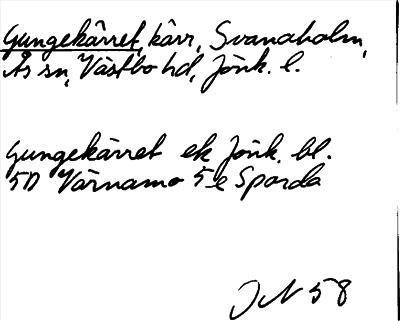 Gungekärret, kärr, Svanaholm,
Ås sn, Västbo hd, Jönk. l.
Gungekärret ek Jönk. bl.
5D Värnamo 5e Sporda
JN 58